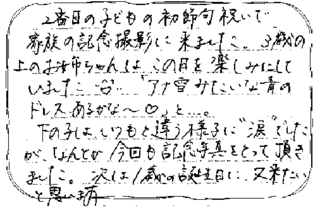 2番目の子どもの初節句祝いで
家族の記念撮影に来ました… 3歳の
上のお姉ちゃんは、この日を楽しみにして
いました 「アナ雪みたいな青の
ドレスあるかな〜♡」と…。
下の子は、いつもと違う様子に"涙"でした
が、なんとか今回も記念写真をとって頂き
ました。次は1歳の誕生日に、又来たい
と思います